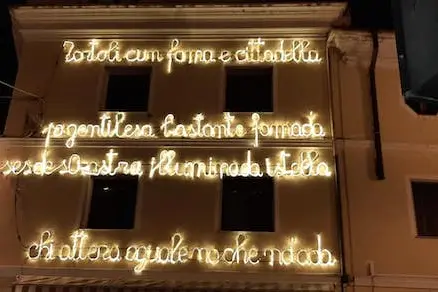 Tortoli cun fama e cittadella
po gentilesa bastante fomada
ses de s'Ozastra illuminada istella
chi attera aguale no che nd'ada